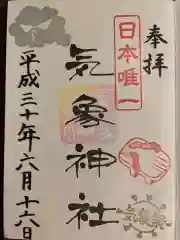 奉拝
日本唯一
気象神社
平成三十年六月十六日